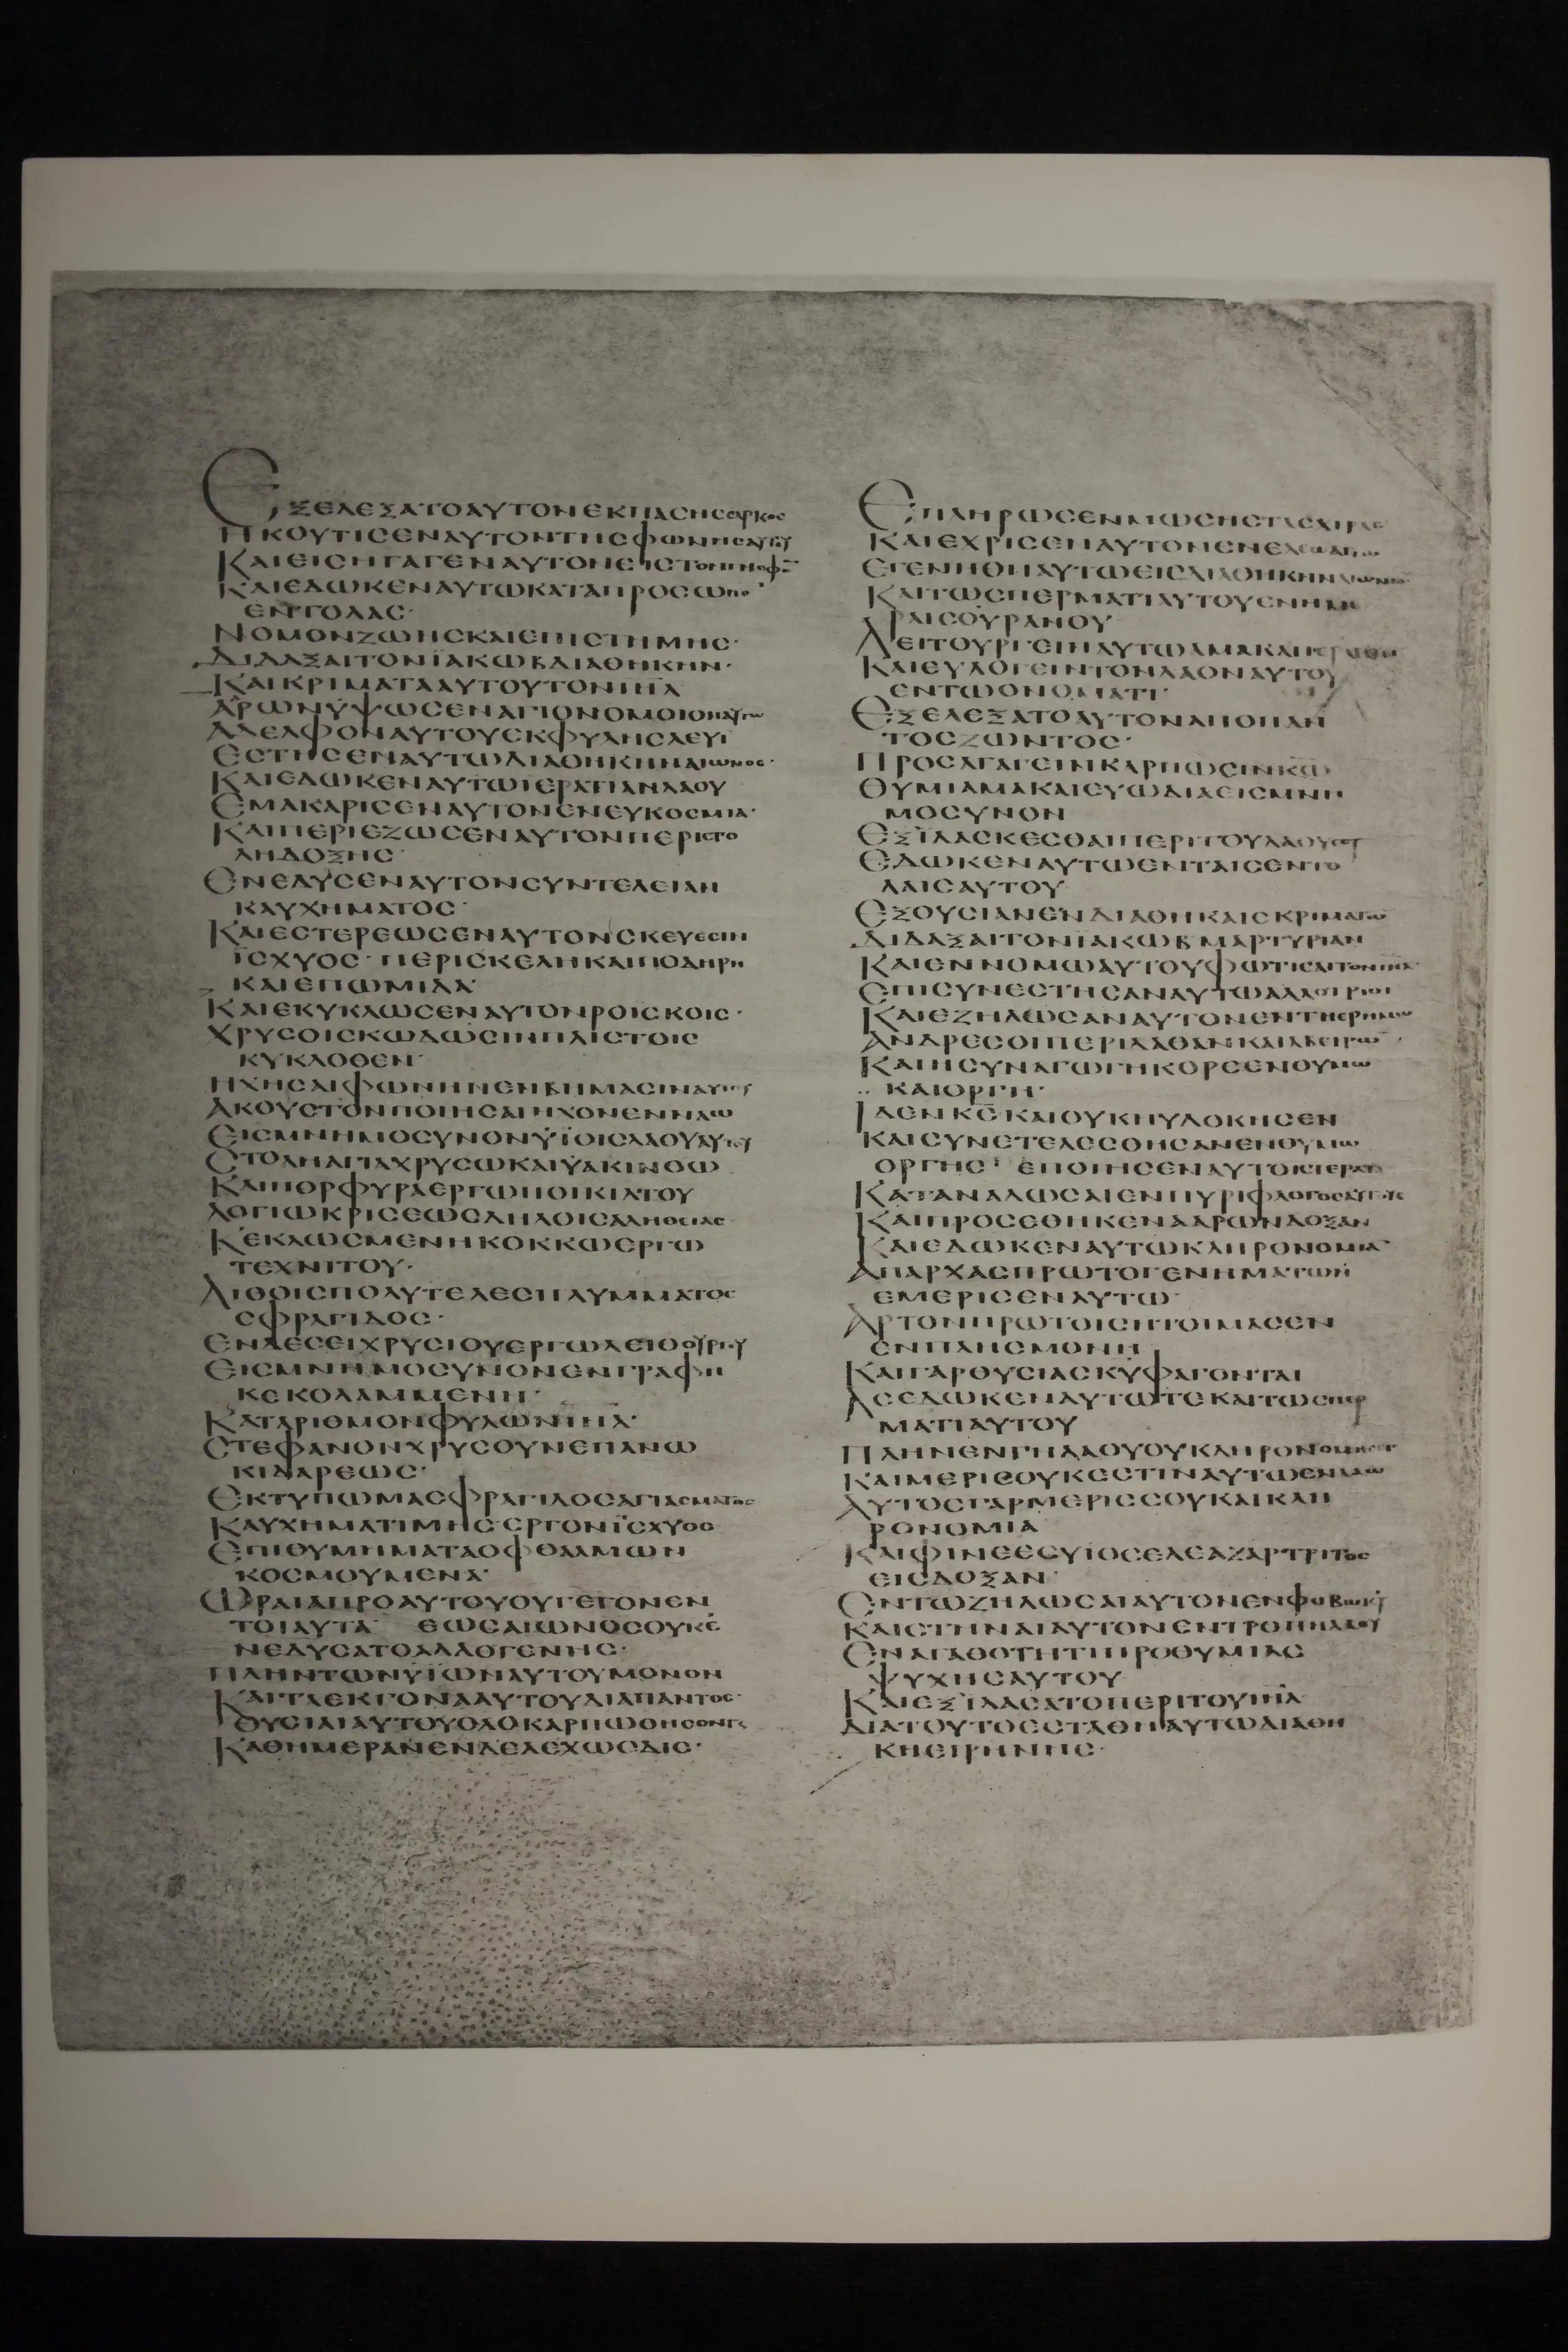 ΕΞΕΛΕΞΑΤΟΑΥΤΟΝΕΚΠΑΣΗΣΣΑΡΚΟΣ
ΗΚΟΥΤΙΣΕΝΑΥΤΟΝΤΗΣΦΩΝΗΣΑΥΤΟΥ
ΚΑΙΕΙΣΗΓΑΓΕΝΑΥΤΟΝΕΙΣΤΟΝΓΝΟΦΟ̅
ΚΑΙΕΔΩΚΕΝΑΥΤΩΚΑΤΑΠΡΟΣΩΠΟ̅
ΕΝΤΟΛΑΣ·
ΝΟΜΟΝΖΩΗΣΚΑΙΕΠΙΣΤΗΜΗΣ·
ΔΙΔΑΞΑΙΤΟΝΪΑΚΩΒΔΙΑΘΗΚΗΝ·
ΚΑΙΚΡΙΜΑΤΑΑΥΤΟΥΤΟΝΙΗΛ
ΑΡΩΝΥΨΩΣΕΝΑΓΙΟΝΟΜΟΙΟΝΑΥΤΩ
ΑΔΕΛΦΟΝΑΥΤΟΥΕΚΦΥΛΗΣΛΕΥΙ
ΕΣΤΗΣΕΝΑΥΤΩΔΙΑΘΗΚΗΝΑΙΩΝΟΣ·
ΚΑΙΕΔΩΚΕΝΑΥΤΩΙΕΡΑΤΙΑΝΛΑΟΥ
ΕΜΑΚΑΡΙΣΕΝΑΥΤΟΝΕΝΕΥΚΟΣΜΙΑ·
ΚΑΙΠΕΡΙΕΖΩΣΕΝΑΥΤΟΝΠΕΡΙΣΤΟ
ΛΗΔΟΞΗΣ·
ΕΝΕΔΥΣΕΝΑΥΤΟΝΣΥΝΤΕΛΕΙΑΝ
ΚΑΥΧΗΜΑΤΟΣ·
ΚΑΙΕΣΤΕΡΕΩΣΕΝΑΥΤΟΝΣΚΕΥΕΣΙΝ
ΪΣΧΥΟΣ·ΠΕΡΙΣΚΕΛΗΚΑΙΠΟΔΗΡΗ
ΚΑΙΕΠΩΜΙΔΑ·
ΚΑΙΕΚΥΚΛΩΣΕΝΑΥΤΟΝΡΟΪΣΚΟΙΣ·
ΧΡΥΣΟΙΣΚΩΔΩΣΙΝΠΛΙΣΤΟΙΣ
ΚΥΚΛΟΘΕΝ·
ΗΧΗΣΑΙΦΩΝΗΝΕΝΒΗΜΑΣΙΝΑΥΤΟΥ
ΑΚΟΥΣΤΟΝΠΟΙΗΣΑΙΗΧΟΝΕΝΝΑΩ
ΕΙΣΜΝΗΜΟΣΥΝΟΝΥΪΟΙΣΛΑΟΥΑΥΤΟΥ
ΣΤΟΛΗΑΓΙΑΧΡΥΣΩΚΑΙΥΑΚΙΝΘΩ
ΚΑΙΠΟΡΦΥΡΑΕΡΓΩΠΟΙΚΙΛΤΟΥ
ΛΟΓΙΩΚΡΙΣΕΩΣΔΗΛΟΙΣΑΛΗΘΕΙΑΣ
ΚΕΚΛΩΣΜΕΝΗΚΟΚΚΩΕΡΓΩ
ΤΕΧΝΙΤΟΥ·
ΛΙΘΟΙΣΠΟΛΥΤΕΛΕΣΙΓΛΥΜΜΑΤΟΣ
ΣΦΡΑΓΙΔΟΣ·
ΕΝΔΕΣΕΙΧΡΥΣΙΟΥΕΡΓΩΛΕΙΘΟΥΡΓΟΥ
ΕΙΣΜΝΗΜΟΣΥΝΟΝΕΝΓΡΑΦΗ
ΚΕΚΟΛΑΜΜΕΝΗ·
ΚΑΤΑΡΙΘΜΟΝΦΥΛΩΝΙΗΛ·
ΣΤΕΦΑΝΟΝΧΡΥΣΟΥΝΕΠΑΝΩ
ΚΙΔΑΡΕΩΣ·
ΕΚΤΥΠΩΜΑΣΦΡΑΓΙΔΟΣΑΓΙΑΣΜΑΤΟΣ
ΚΑΥΧΗΜΑΤΙΜΗΣΕΡΓΟΝΪΣΧΥΟΣ
ΕΠΙΘΥΜΗΜΑΤΑΟΦΘΑΛΜΩΝ
ΚΟΣΜΟΥΜΕΝΑ·
ΩΡΑΙΑΠΡΟΑΥΤΟΥΟΥΓΕΓΟΝΕΝ
ΤΟΙΑΥΤΑ ΕΩΣΑΙΩΝΟΣΟΥΚΕ
ΝΕΔΥΣΑΤΟΑΛΛΟΓΕΝΗΣ·
ΠΛΗΝΤΩΝΥΪΩΝΑΥΤΟΥΜΟΝΟΝ
ΚΑΙΤΑΕΚΓΟΝΑΑΥΤΟΥΔΙΑΠΑΝΤΟΣ·
ΘΥΣΙΑΙΑΥΤΟΥΟΛΟΚΑΡΠΩΘΗΣΟΝΤΑΙ
ΚΑΘΗΜΕΡΑΝΕΝΔΕΛΕΧΩΣΔΙΣ·
ΕΠΛΗΡΩΣΕΝΜΩΣΗΣΤΑΣΧΙΡΑΣ
ΚΑΙΕΧΡΙΣΕΝΑΥΤΟΝΕΝΕΛΑΙΩΑΓΙΩ
ΕΓΕΝΗΘΗΑΥΤΩΕΙΣΔΙΑΘΗΚΗΝΑΙΩΝΙΟ̅
ΚΑΙΤΩΣΠΕΡΜΑΤΙΑΥΤΟΥΕΝΗΜΕ
ΡΑΙΣΟΥΡΑΝΟΥ
ΛΕΙΤΟΥΡΓΕΙΝΑΥΤΩΑΜΑΚΑΙΙΕΡΑΤΕΥΕΙΝ
ΚΑΙΕΥΛΟΓΕΙΝΤΟΝΛΑΟΝΑΥΤΟΥ
ΕΝΤΩΟΝΟΜΑΤΙ·
ΕΞΕΛΕΞΑΤΟΑΥΤΟΝΑΠΟΠΑΝ
ΤΟΣΖΩΝΤΟΣ·
ΠΡΟΣΑΓΑΓΕΙΝΚΑΡΠΩΣΙΝΚΩ
ΘΥΜΙΑΜΑΚΑΙΕΥΩΔΙΑΕΙΣΜΝΗ
ΜΟΣΥΝΟΝ
ΕΞΪΛΑΣΚΕΣΘΑΙΠΕΡΙΤΟΥΛΑΟΥΣΟΥ
ΕΔΩΚΕΝΑΥΤΩΕΝΤΑΙΣΕΝΤΟ
ΛΑΙΣΑΥΤΟΥ
ΕΞΟΥΣΙΑΝΕΝΔΙΑΘΗΚΑΙΣΚΡΙΜΑΤΩ̅
ΔΙΔΑΞΑΙΤΟΝΪΑΚΩΒΜΑΡΤΥΡΙΑΝ
ΚΑΙΕΝΝΟΜΩΑΥΤΟΥΦΩΤΙΣΑΙΤΟΝΙΗΛ·
ΕΠΙΣΥΝΕΣΤΗΣΑΝΑΥΤΩΑΛΛΟΤΡΙΟΙ
ΚΑΙΕΖΗΛΩΣΑΝΑΥΤΟΝΕΝΤΗΕΡΗΜΩ
ΑΝΔΡΕΣΟΙΠΕΡΙΔΑΘΑΝΚΑΙΑΒΕΙΡΩ̅
ΚΑΙΗΣΥΝΑΓΩΓΗΚΟΡΕΕΝΘΥΜΩ
ΚΑΙΟΡΓΗ·
ΙΔΕΝΚΣΚΑΙΟΥΚΗΥΔΟΚΗΣΕΝ
ΚΑΙΣΥΝΕΤΕΛΕΣΘΗΣΑΝΕΝΘΥΜΩ
ΟΡΓΗΣ· ΕΠΟΙΗΣΕΝΑΥΤΟΙΣΤΕΡΑΤΑ
ΚΑΤΑΝΑΛΩΣΑΙΕΝΠΥΡΙΦΛΟΓΟΣΑΥΤΟΥΣ
ΚΑΙΠΡΟΣΕΘΗΚΕΝΑΑΡΩΝΔΟΞΑΝ
ΚΑΙΕΔΩΚΕΝΑΥΤΩΚΛΗΡΟΝΟΜΙΑ̅
ΑΠΑΡΧΑΣΠΡΩΤΟΓΕΝΗΜΑΤΩΝ
ΕΜΕΡΙΣΕΝΑΥΤΩ·
ΑΡΤΟΝΠΡΩΤΟΙΣΗΤΟΙΜΑΣΕΝ
ΕΝΠΛΗΣΜΟΝΗ
ΚΑΙΓΑΡΘΥΣΙΑΣΚΥΦΑΓΟΝΤΑΙ
ΑΣΕΔΩΚΕΝΑΥΤΩΤΕΚΑΙΤΩΣΠΕΡ
ΜΑΤΙΑΥΤΟΥ
ΠΛΗΝΕΝΓΗΛΑΟΥΟΥΚΛΗΡΟΝΟΜΗΣΕΙ
ΚΑΙΜΕΡΙΣΟΥΚΕΣΤΙΝΑΥΤΩΕΝΛΑΩ
ΑΥΤΟΣΓΑΡΜΕΡΙΣΣΟΥΚΑΙΚΛΗ
ΡΟΝΟΜΙΑ
ΚΑΙΦΙΝΕΕΣΥΙΟΣΕΛΕΑΖΑΡΤΡΙΤΟΣ
ΕΙΣΔΟΞΑΝ·
ΕΝΤΩΖΗΛΩΣΑΙΑΥΤΟΝΕΝΦΟΒΩΚΥ
ΚΑΙΣΤΗΝΑΙΑΥΤΟΝΕΝΤΡΟΠΗΛΑΟΥ
ΕΝΑΓΑΘΟΤΗΤΙΠΡΟΘΥΜΙΑΣ
ΨΥΧΗΣΑΥΤΟΥ
ΚΑΙΕΞΙΛΑΣΑΤΟΠΕΡΙΤΟΥΙΗΛ
ΔΙΑΤΟΥΤΟΕΣΤΑΘΗΑΥΤΩΔΙΑΘΗ
ΚΗΕΙΡΗΝΗΣ·